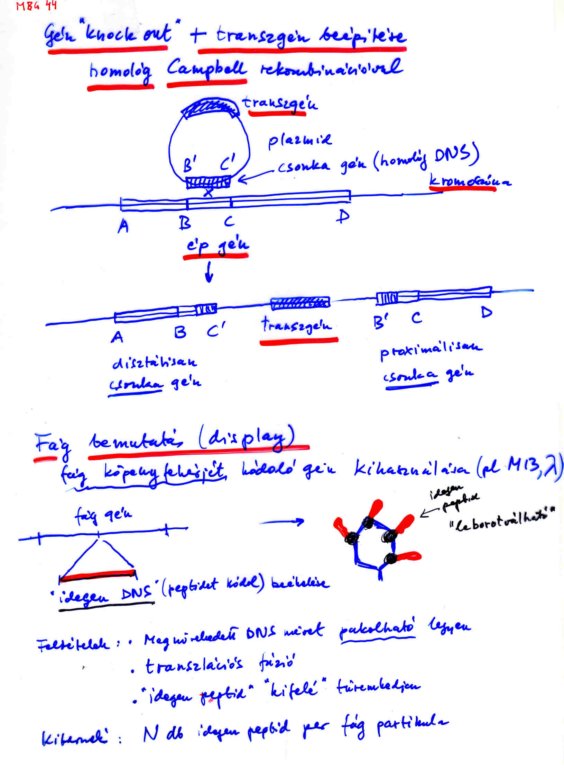 MBG 44
Gén "knock out" + transzgén beépítése
homológ Campbell rekombinációval
transzgén
plazmid
B' C' csonka gén (homológ DNS)
kromoszóma
x
A B C D
ép gén
A B C' transzgén B' C D
disztálisan
csonka gén
proximálisan
csonka gén
Fág bemutatás (display)
fág köpenyfehérjét kódoló gén kihasználása (pl M13, λ)
fág gén
idegen
peptid
"leborotválható"
"idegen DNS" (peptidet kódol) beékelése
Feltételek: • Megnövekedett DNS méret pakolható legyen
• transzlációs fúzió
• "idegen peptid" "kifelé" türemkedjen
Kitermelé: N db idegen peptid per fág partikula